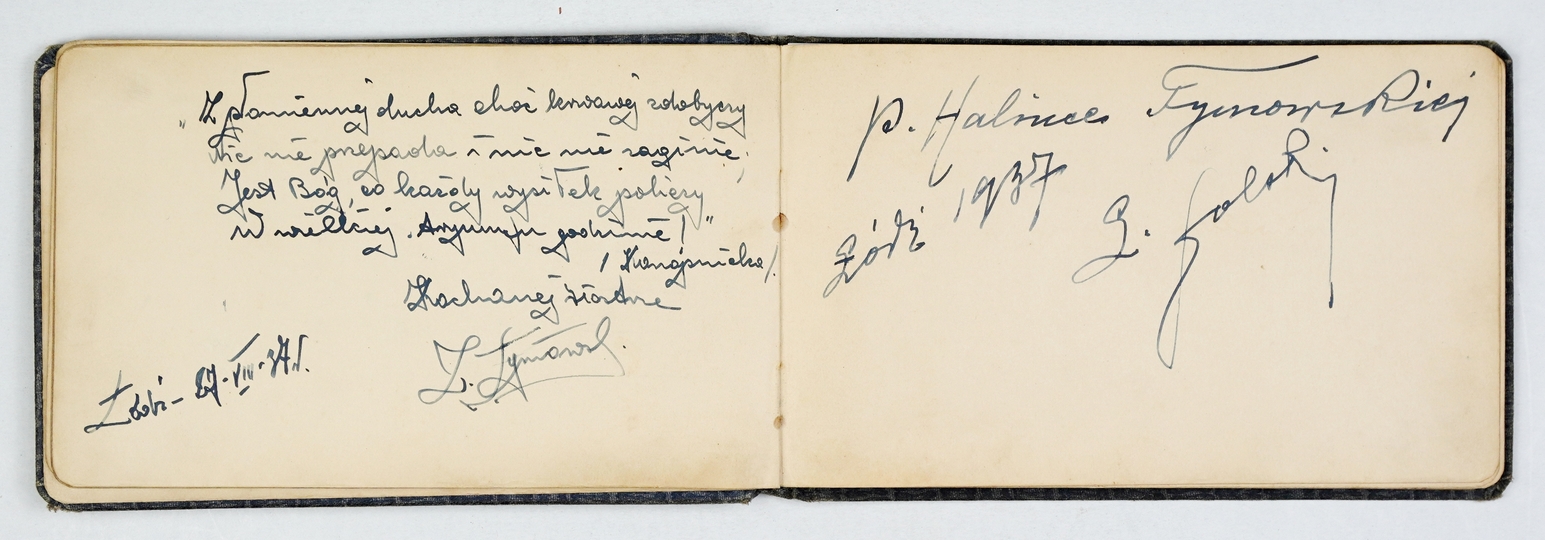 „Z płomiennej ducha choć krwawej zdobyczy
Nic nie przepada i nic nie zaginie;
Jest Bóg, co każdy wysiłek policzy
W wielkiej
godzinie!"
/Konopnicka/
Kochanej siostrze
Z. Tymowsk.
Łódź - 27-VIII-37 r.
P. Halince Tymowskiej
Łódź 1937